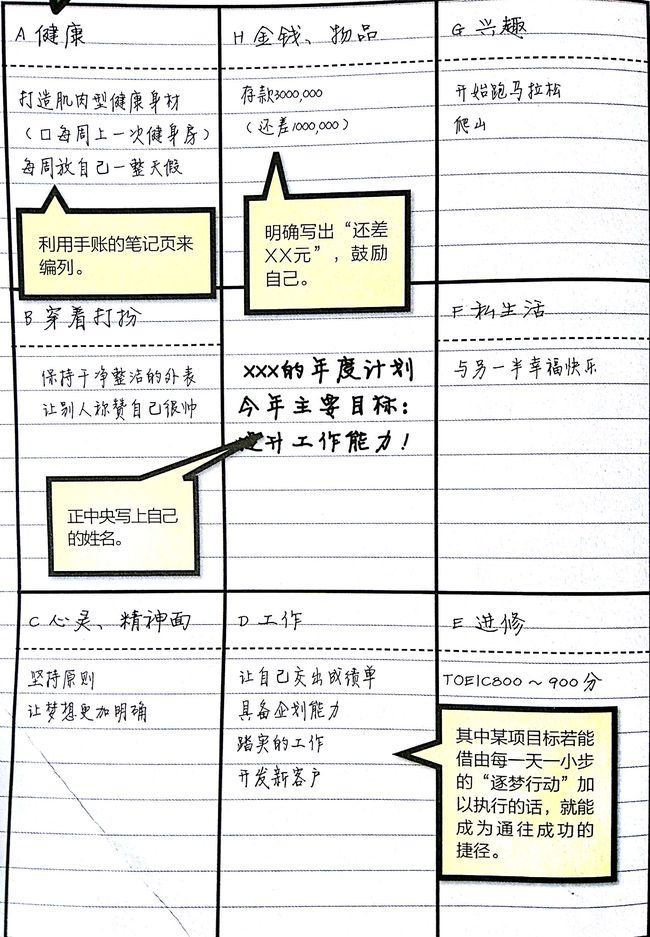 A 健康
打造肌肉型健康身材
（口每周上一次健身房）
每周放自己一整天假
利用手账的笔记页来
编列。
H 金钱、物品
存款3000,000
（还差1000,000）
明确写出“还差
XX元”，鼓励
自己。
G 兴趣
开始跑马拉松
爬山
B 穿着打扮
保持干净整洁的外表
让别人称赞自己很帅
正中央写上自己
的姓名。
xxx的年度计划
今年主要目标：
提升工作能力！
F 私生活
与另一半幸福快乐
C 心灵、精神面
坚持原则
让梦想更加明确
D 工作
让自己交出成绩单
具备企划能力
踏实的工作
开发新客户
E 进修
TOEIC800～900分
其中某项目标若能
借由每一天一小步
的“逐梦行动”加
以执行的话，就能
成为通往成功的
捷径。